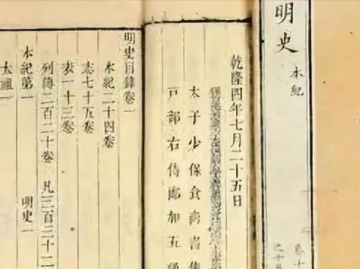 明史
本紀
卷十
乾隆四年七月二十五日
太子少保食尚書
戶部右侍郎加五
明史目錄卷一
本紀二十四卷
志七十五卷
表一十三卷
列傳二百二十卷 凡三百三十二
本紀第一 明史一
太祖一